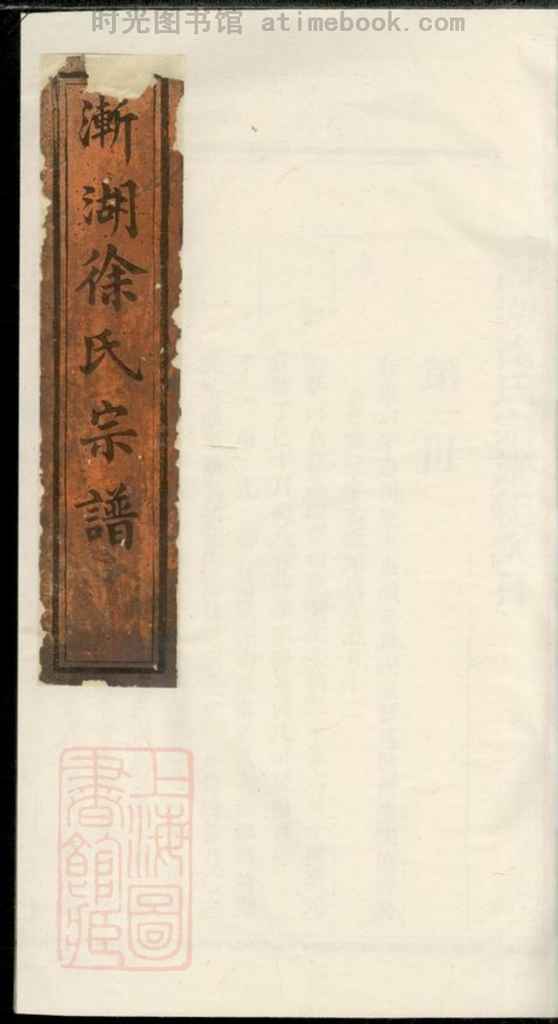 时光图书馆 atimebook.com
漸湖徐氏宗譜
上海圖
書館藏